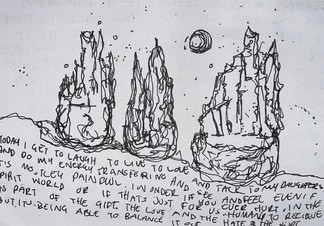 TODAY I GET TO LAUGH TO LIVE TO LOVE
AND DO MY ENERGY TRANSFERING AND TALK TO MY DAUGHTERS
IT'S MOSTLEY PAINDUL. IN ORDER IF SEE AND FEEL EVEN IF
SPIRIT WORLD OR IF THATS JUST FOR US EVER HURT. IN THE
AS PART OF THE GIFT THE LOVE AND THE HUMANS TO RECIEVE
BUT IN BEING ABLE TO BALANCE IT OUT HATE & THE HURT